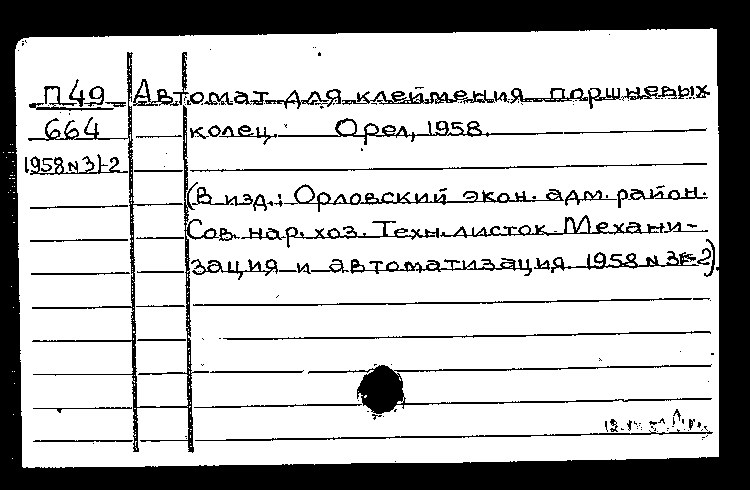 П49 Автомат для клеймения поршневых
664 колец. Орел, 1958.
1958 N 31-2
(В изд.: Орловский экон. адм. район.
Сов. нар. хоз. Техн. листок Механи-
зация и автоматизация. 1958 N 31-2).